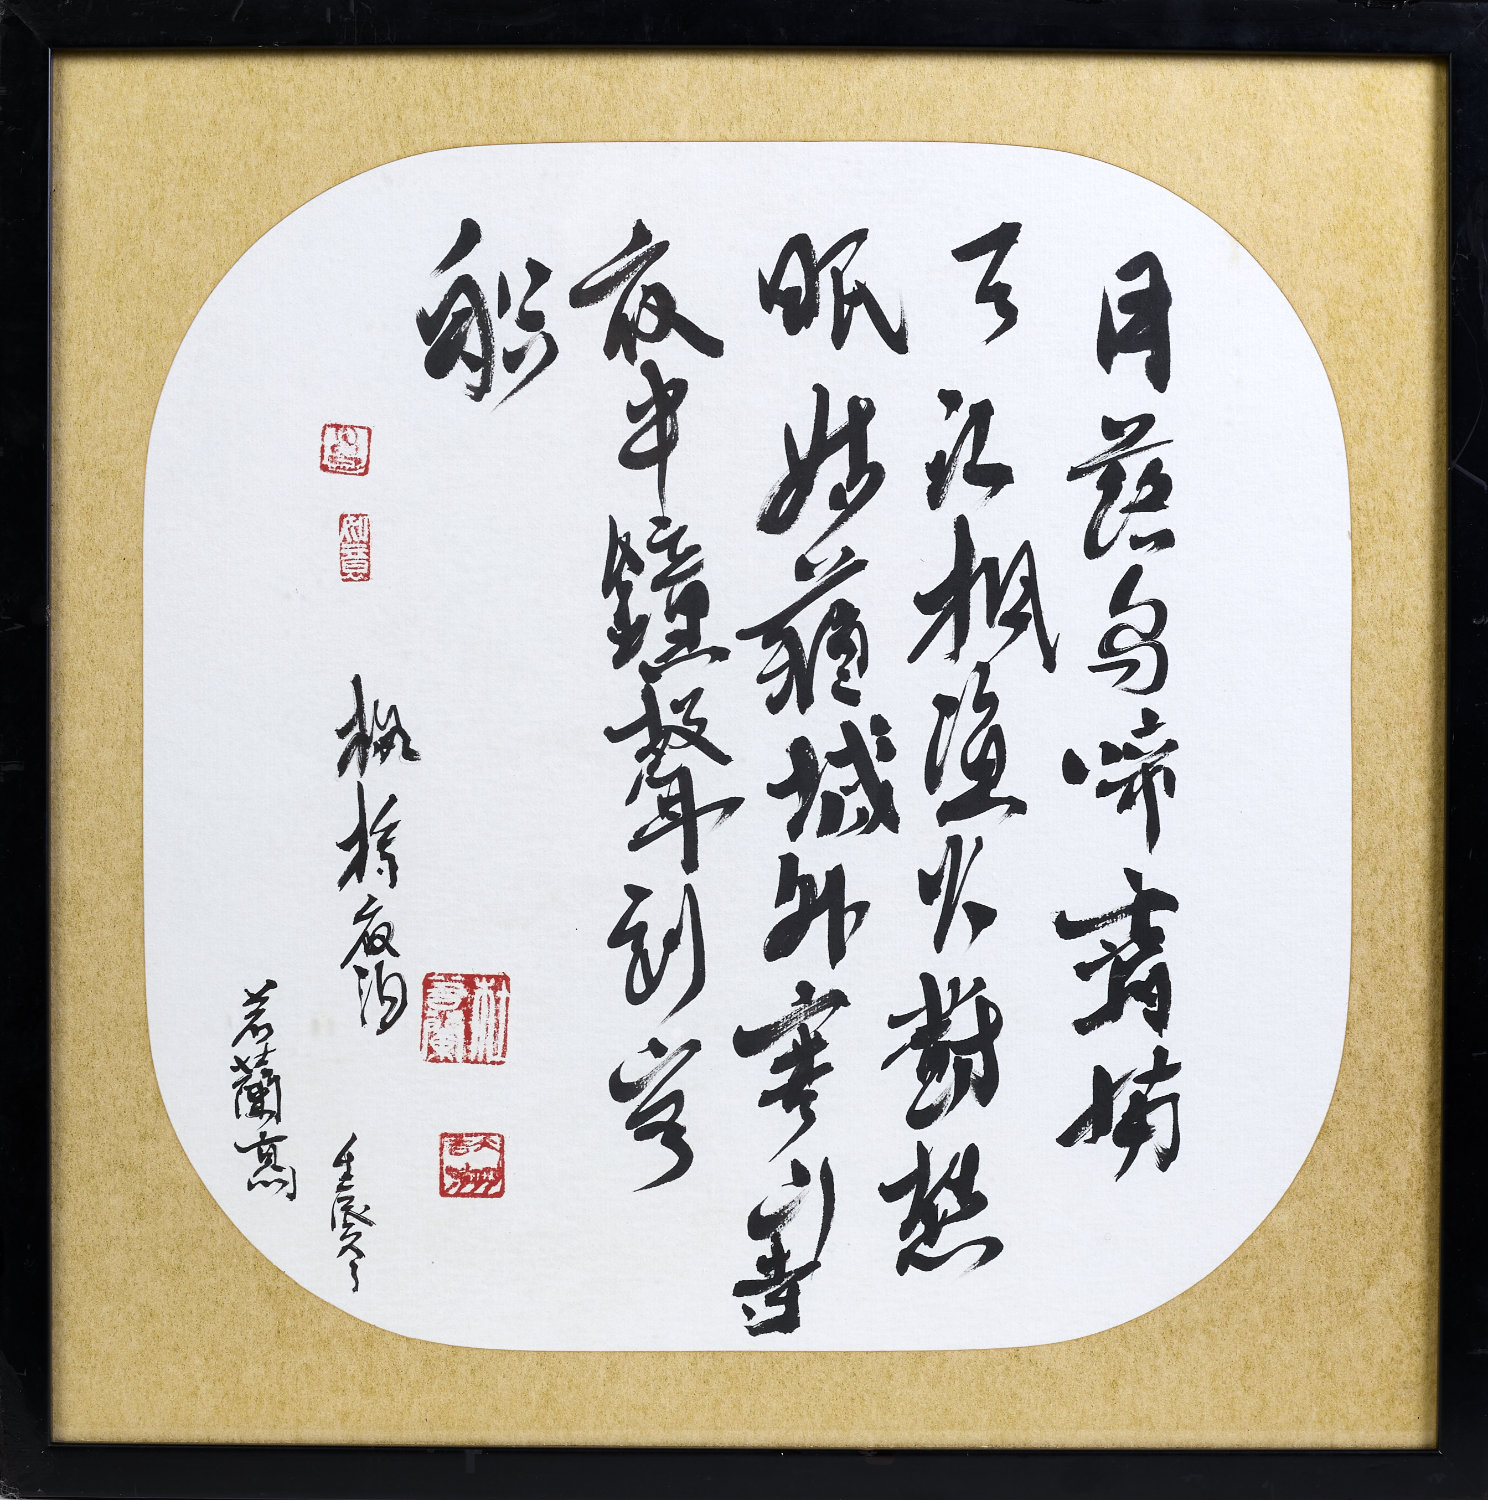 月落烏啼霜滿
天江楓漁火對愁
眠姑蘇城外寒山寺
夜半鐘聲到客
船
楓橋夜泊
壬辰冬
若蘭
如意
杜若蘭